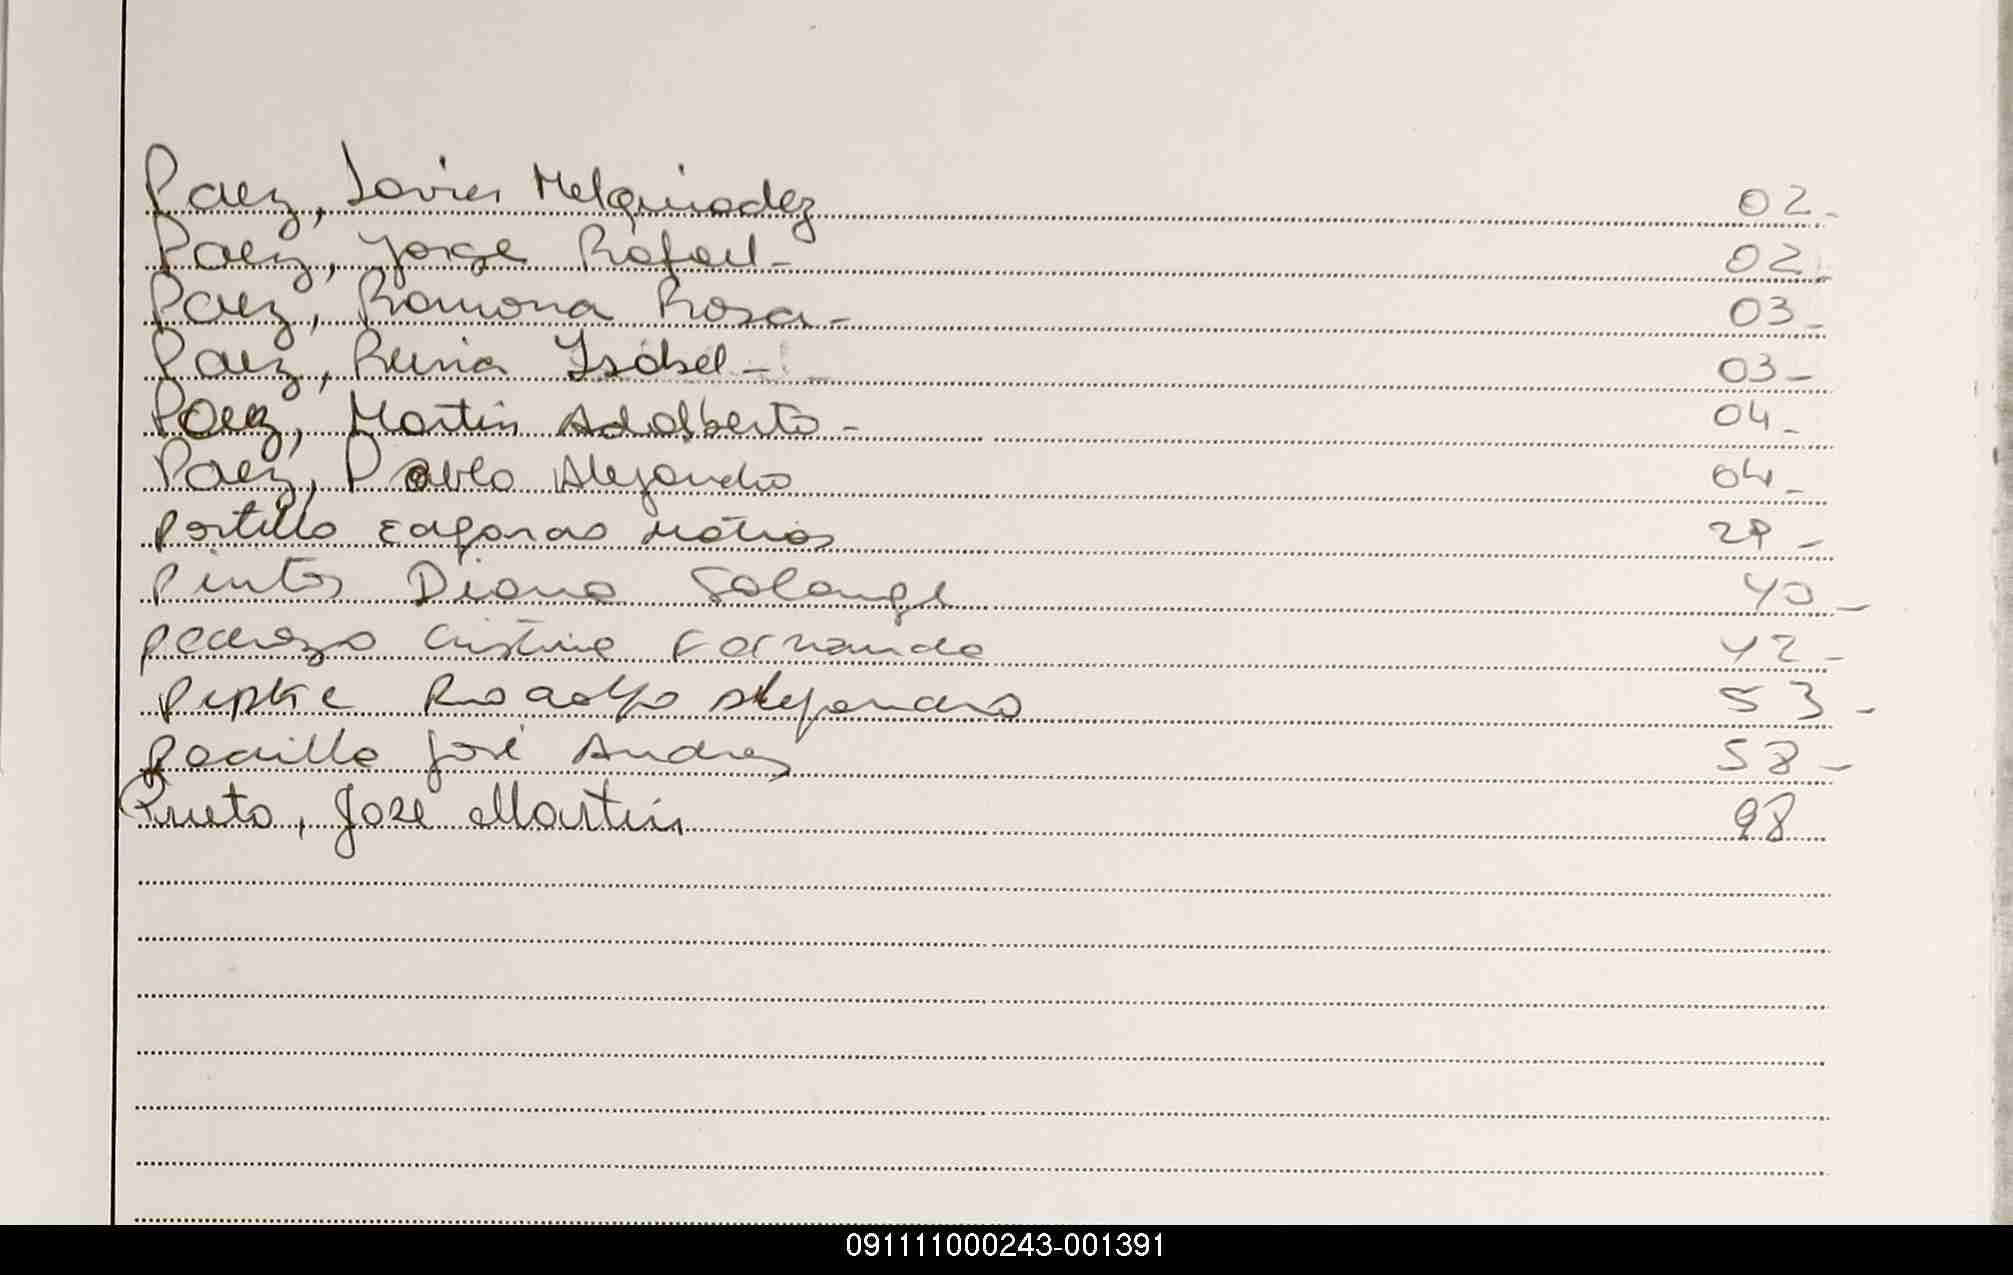 Paez, Javier Melquiadez 02-
Paez, Jorge Rafael- 02-
Paez, Ramona Rosa- 03-
Paez, Reina Isabel- 03-
Paez, Martin Adalberto- 04-
Paez, Pablo Alejandro 04-
Portillo Matias 29-
Pintos Diana Solange 40-
Pedrozo Cristina Fernanda 42-
Alejandro 53-
Padilla José Andres 58-
Prieto, Jose Martin 98
091111000243-001391